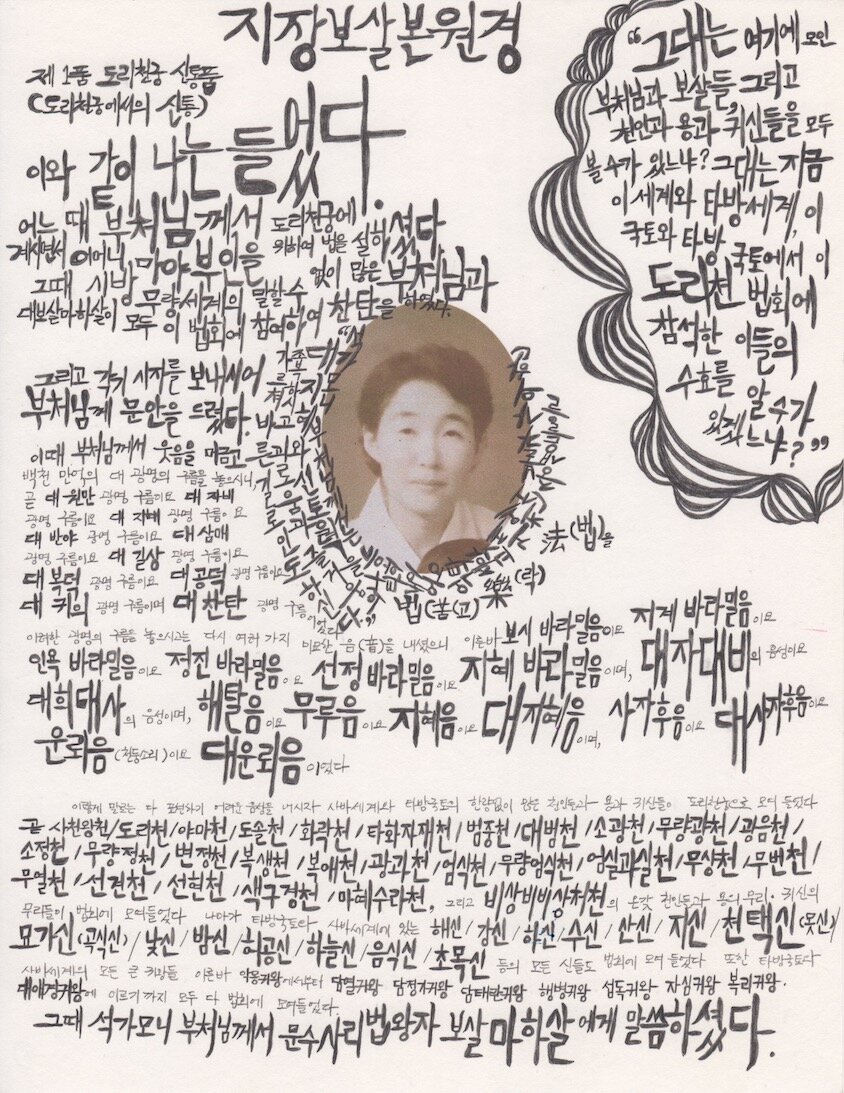 지장보살본원경
제 1품 도리천궁 신통품
(도리천궁에서의 신통)
이와 같이 나는 들었다.
어느 때 부처님께서 도리천궁에
계시면서 어머니 마야부인을 위하여 법을 설하셨다.
그때 시방 무량세계의 말할 수 없이 많은 부처님과
대보살마하살이 모두 이 법회에 참여하여 찬탄을 하였다.
그리고 각기 시자를 보내시어
부처님께 문안을 드렸다.
이때 부처님께서 웃음을 머금고
백천 만억의 대 광명의 구름을 놓으시니
곧 대 원만 광명 구름이요 대 자비
광명 구름이요 대 지혜 광명 구름이요
대 반야 광명 구름이요 대 삼매
광명 구름이요 대 길상 광명 구름이요
대 복덕 광명 구름이요 대 공덕 광명 구름이요
대 귀의 광명 구름이며 대 찬탄 광명 구름이었다
法(법)을
법(苦(고) 樂(락)
이러한 광명의 구름을 놓으시고는 다시 여러 가지 미묘한 음(音)을 내셨으니 이른바 보시 바라밀음이요 지계 바라밀음이요
인욕 바라밀음이요 정진 바라밀음이요 선정 바라밀음이요 지혜 바라밀음이며, 대자대비의 음성이요
대희대사의 음성이며, 해탈음이요 무루음이요 지혜음이요 대지혜음이며, 사자후음이요 대사자후음이요
운뢰음(천둥소리)이요 대운뢰음이었다
이렇게 말로는 다 표현하기 어려운 음성을 내시자 사바세계와 타방국토의 한량없이 많은 천인들과 용과 귀신들이 도리천궁으로 모여 들었다
곧 사천왕천/도리천/야마천/도솔천/화락천/타화자재천/범중천/대범천/소광천/무량광천/광음천/
소정천/무량정천/변정천/복생천/복애천/광과천/엄식천/무량엄식천/엄식과실천/무상천/무번천/
무열천/선견천/선현천/색구경천/마혜수라천, 그리고 비상비비상처천의 온갖 천인들과 용의 우리, 귀신의
무리들이 법회에 모여들었다 나아가 타방국토와 사바세계에 있는 해신/강신/하신/수신/산신/지신/천택신(못신)/
묘가신(곡식신)/낮신/밤신/허공신/하늘신/음식신/초목신 등의 모든 신들도 법회에 모여 들었다 또한 타방국토와
사바세계의 모든 큰 귀왕들 이른바 악목귀왕에서부터 담혈귀왕 담정기귀왕 담태란귀왕 행병귀왕 섭독귀왕 자심귀왕 복리귀왕.
대애경귀왕에 이르기까지 모두 다 법회에 모여들었다.
그때 석가모니 부처님께서 문수사리법왕자 보살 마하살에게 말씀하셨다.
“그대는 여기에 모인
부처님과 보살들, 그리고
천인과 용과 귀신들을 모두
볼 수가 있느냐? 그대는 지금
이 세계와 타방세계, 이
국토와 타방 국토에서 이
도리천 법회에
참석한 이들의
수효를 알 수가
있겠느냐?”